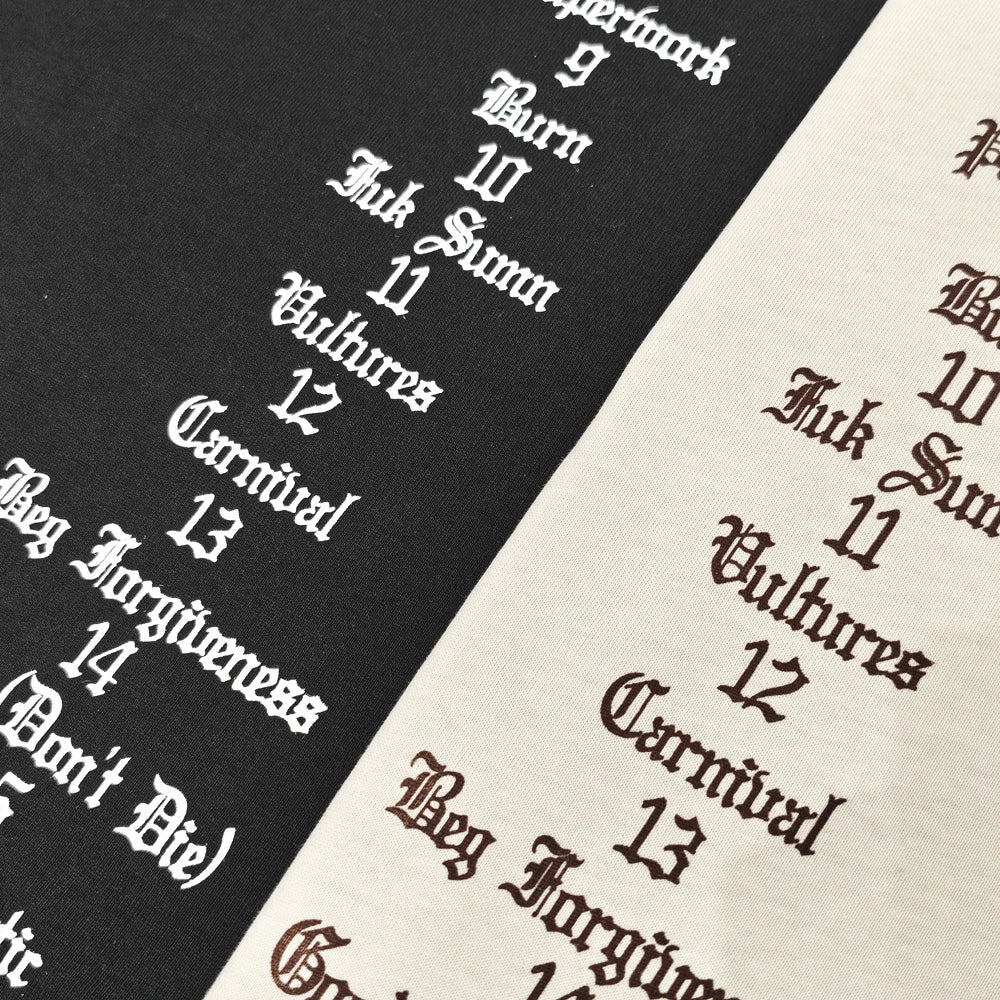 9
Burn
10
Fuk Sumn
11
Vultures
12
Carnival
13
Beg Forgiveness
14
(Don't Die)
10
Fuk
11
Vultures
12
Carnival
13
Beg Forgiveness
14